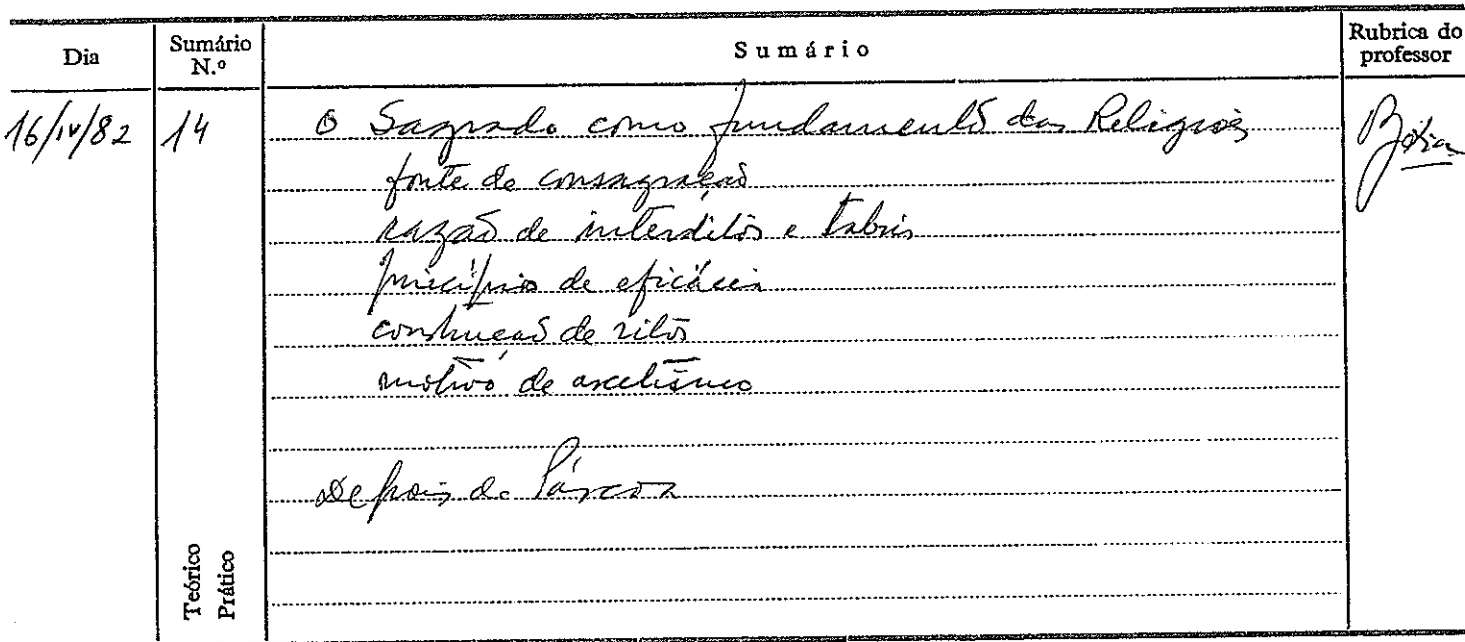 Dia
Sumário N.º
Sumário
Rubrica do professor
16/IV/82 14 O Sagrado como fundamento das Religiões
fonte de consagração
razão de interditos e tabus
princípio de eficácia
construção de ritos
motivo de ascetismo
Depois da Páscoa
Teórico
Prático